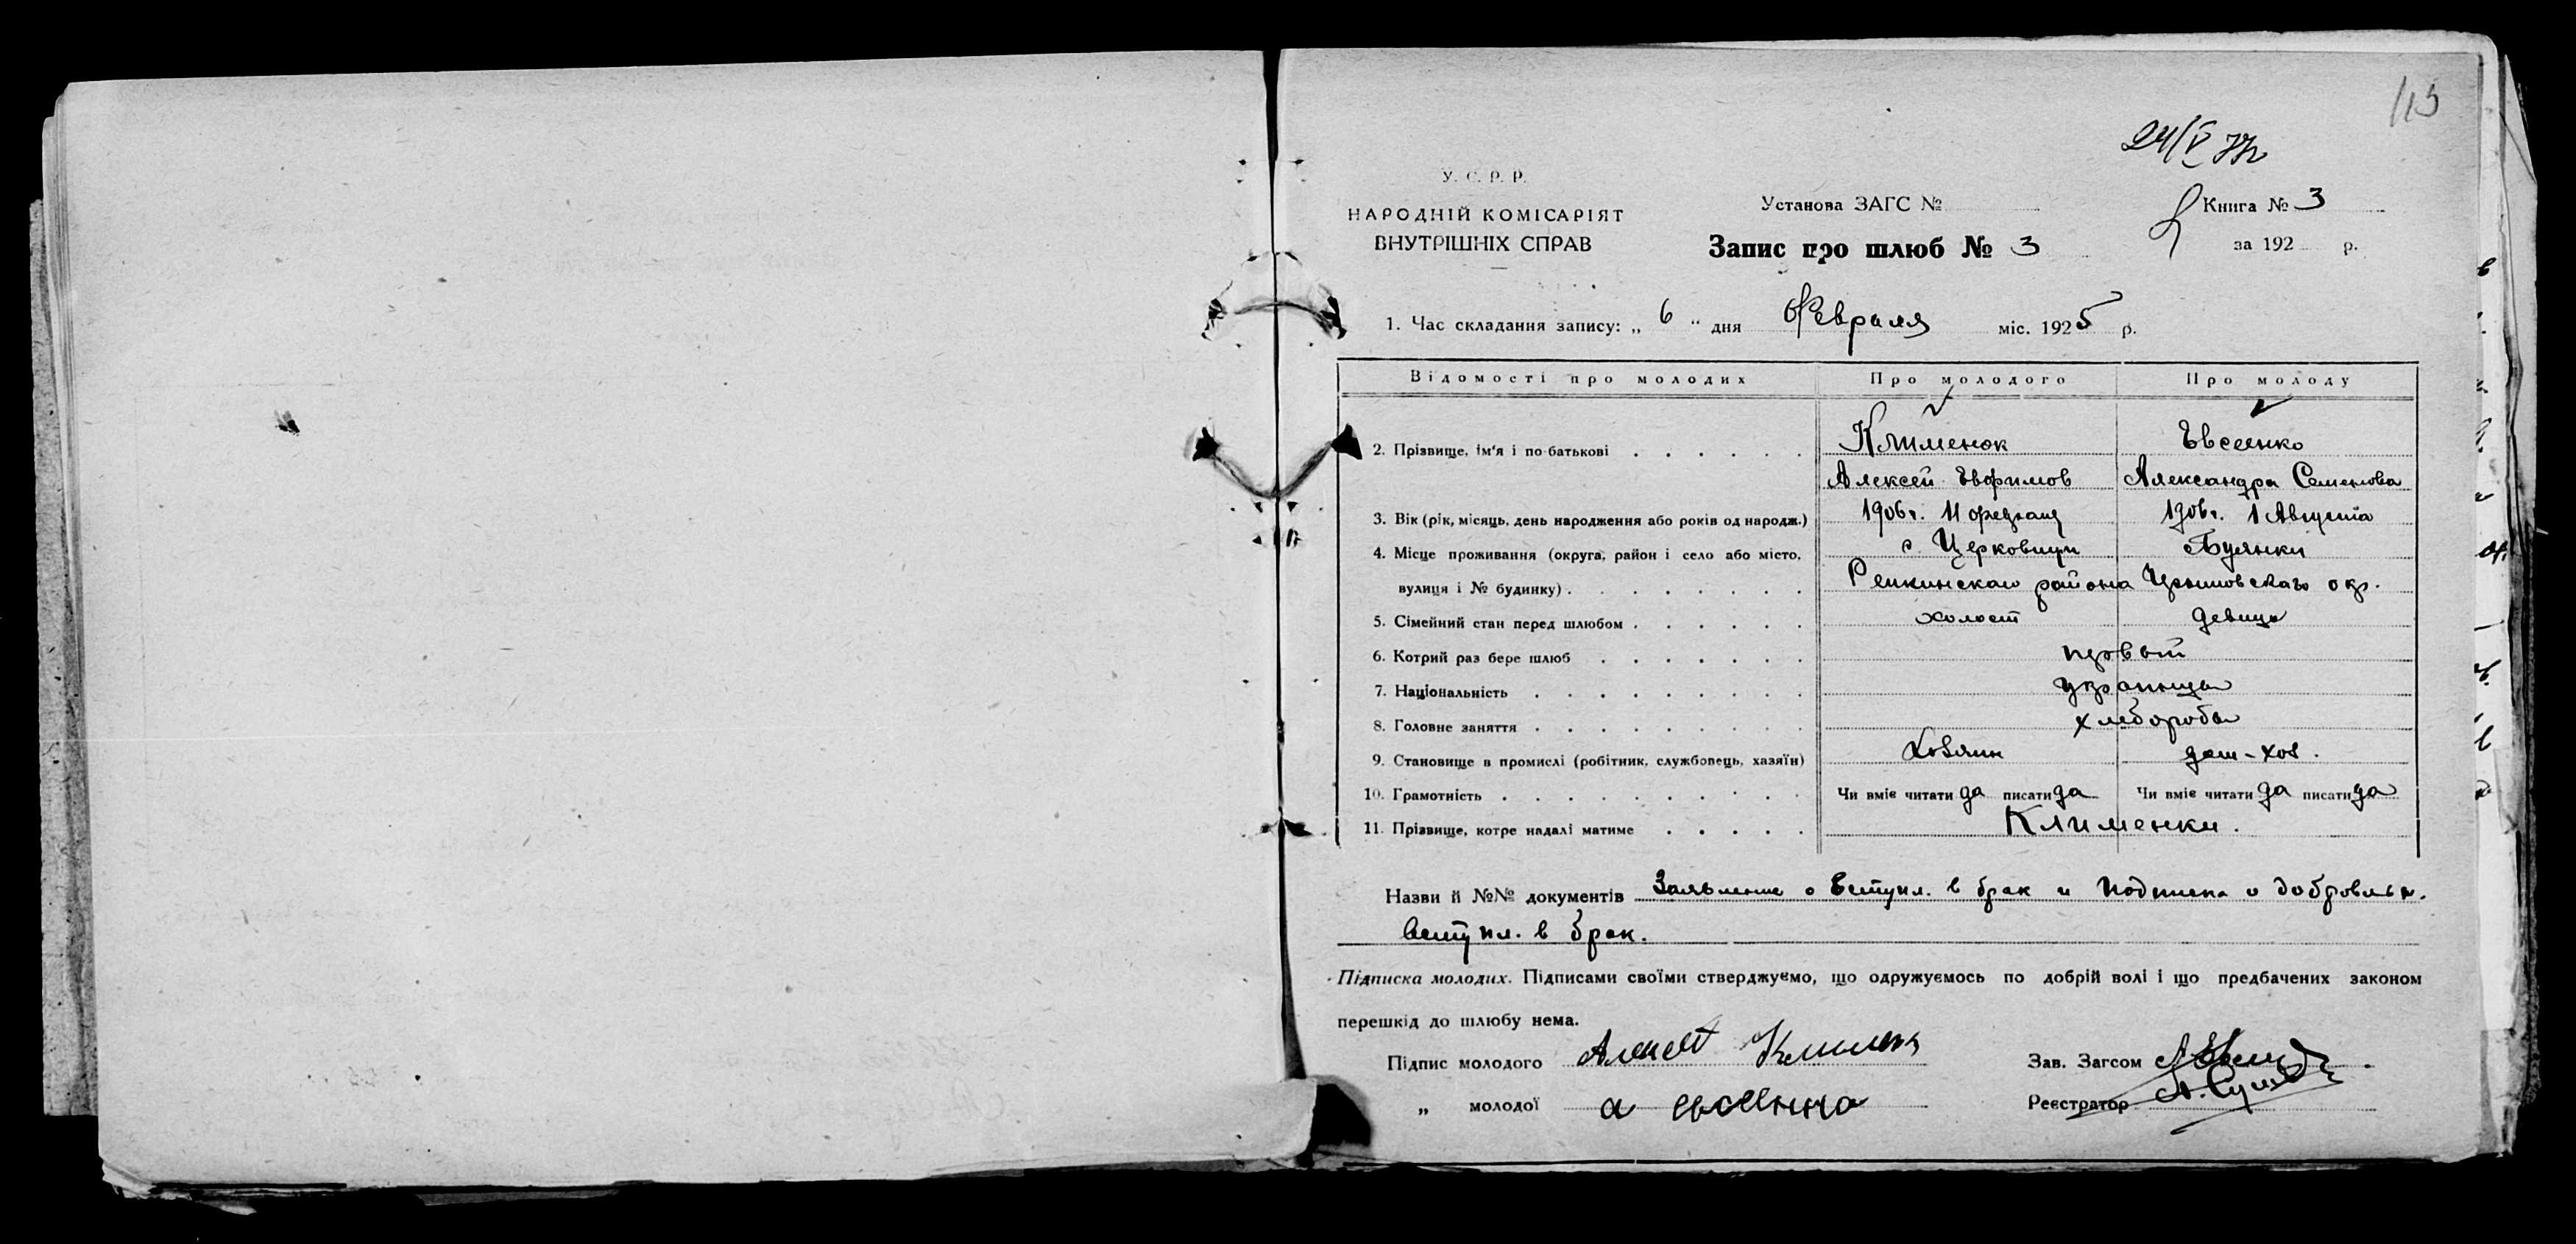 113
24/V 77г
У. С. Р. Р.
НАРОДНІЙ КОМІСАРІЯТ
ВНУТРІШНІХ СПРАВ
Установа ЗАГС №
Запис про шлюб № 3
Книга № 3
за 192 р.
1. Час складання запису: „ 6 “ дня Февраля міс. 1925 р.
Відомості про молодих Про молодого Про молоду
2. Прізвище, ім'я і по-батькові Клименок Евсеенко
Алексей Евфимов Александра Семенова
3. Вік (рік, місяць, день народження або років од народж.) 1906 г. 11 1906 г. 1 Августа
4. Місце проживання (округа, район і село або місто, с. Церковищи Буянки
вулиця і № будинку) Репкинскаго района окр.
5. Сімейний стан перед шлюбом холост девица
6. Котрий раз бере шлюб первый
7. Національність украинцы
8. Головне заняття хлеборобы
9. Становище в промислі (робітник, службовець, хазяїн) Хозяин дом-хоз.
10. Грамотність Чи вміє читати да писати да Чи вміє читати да писати да
11. Прізвище, котре надалі матиме Клименки.
Назви й №№ документів Заявление о Вступл. в брак и Подписка о добровольн.
Вступл. в брак.
Підписка молодих. Підписами своїми стверджуємо, що одружуємось по добрій волі і що предбачених законом
перешкід до шлюбу нема.
Підпис молодого Алексей Клименк
Зав. Загсом
„ молодої а евсеенко
Реєстратор